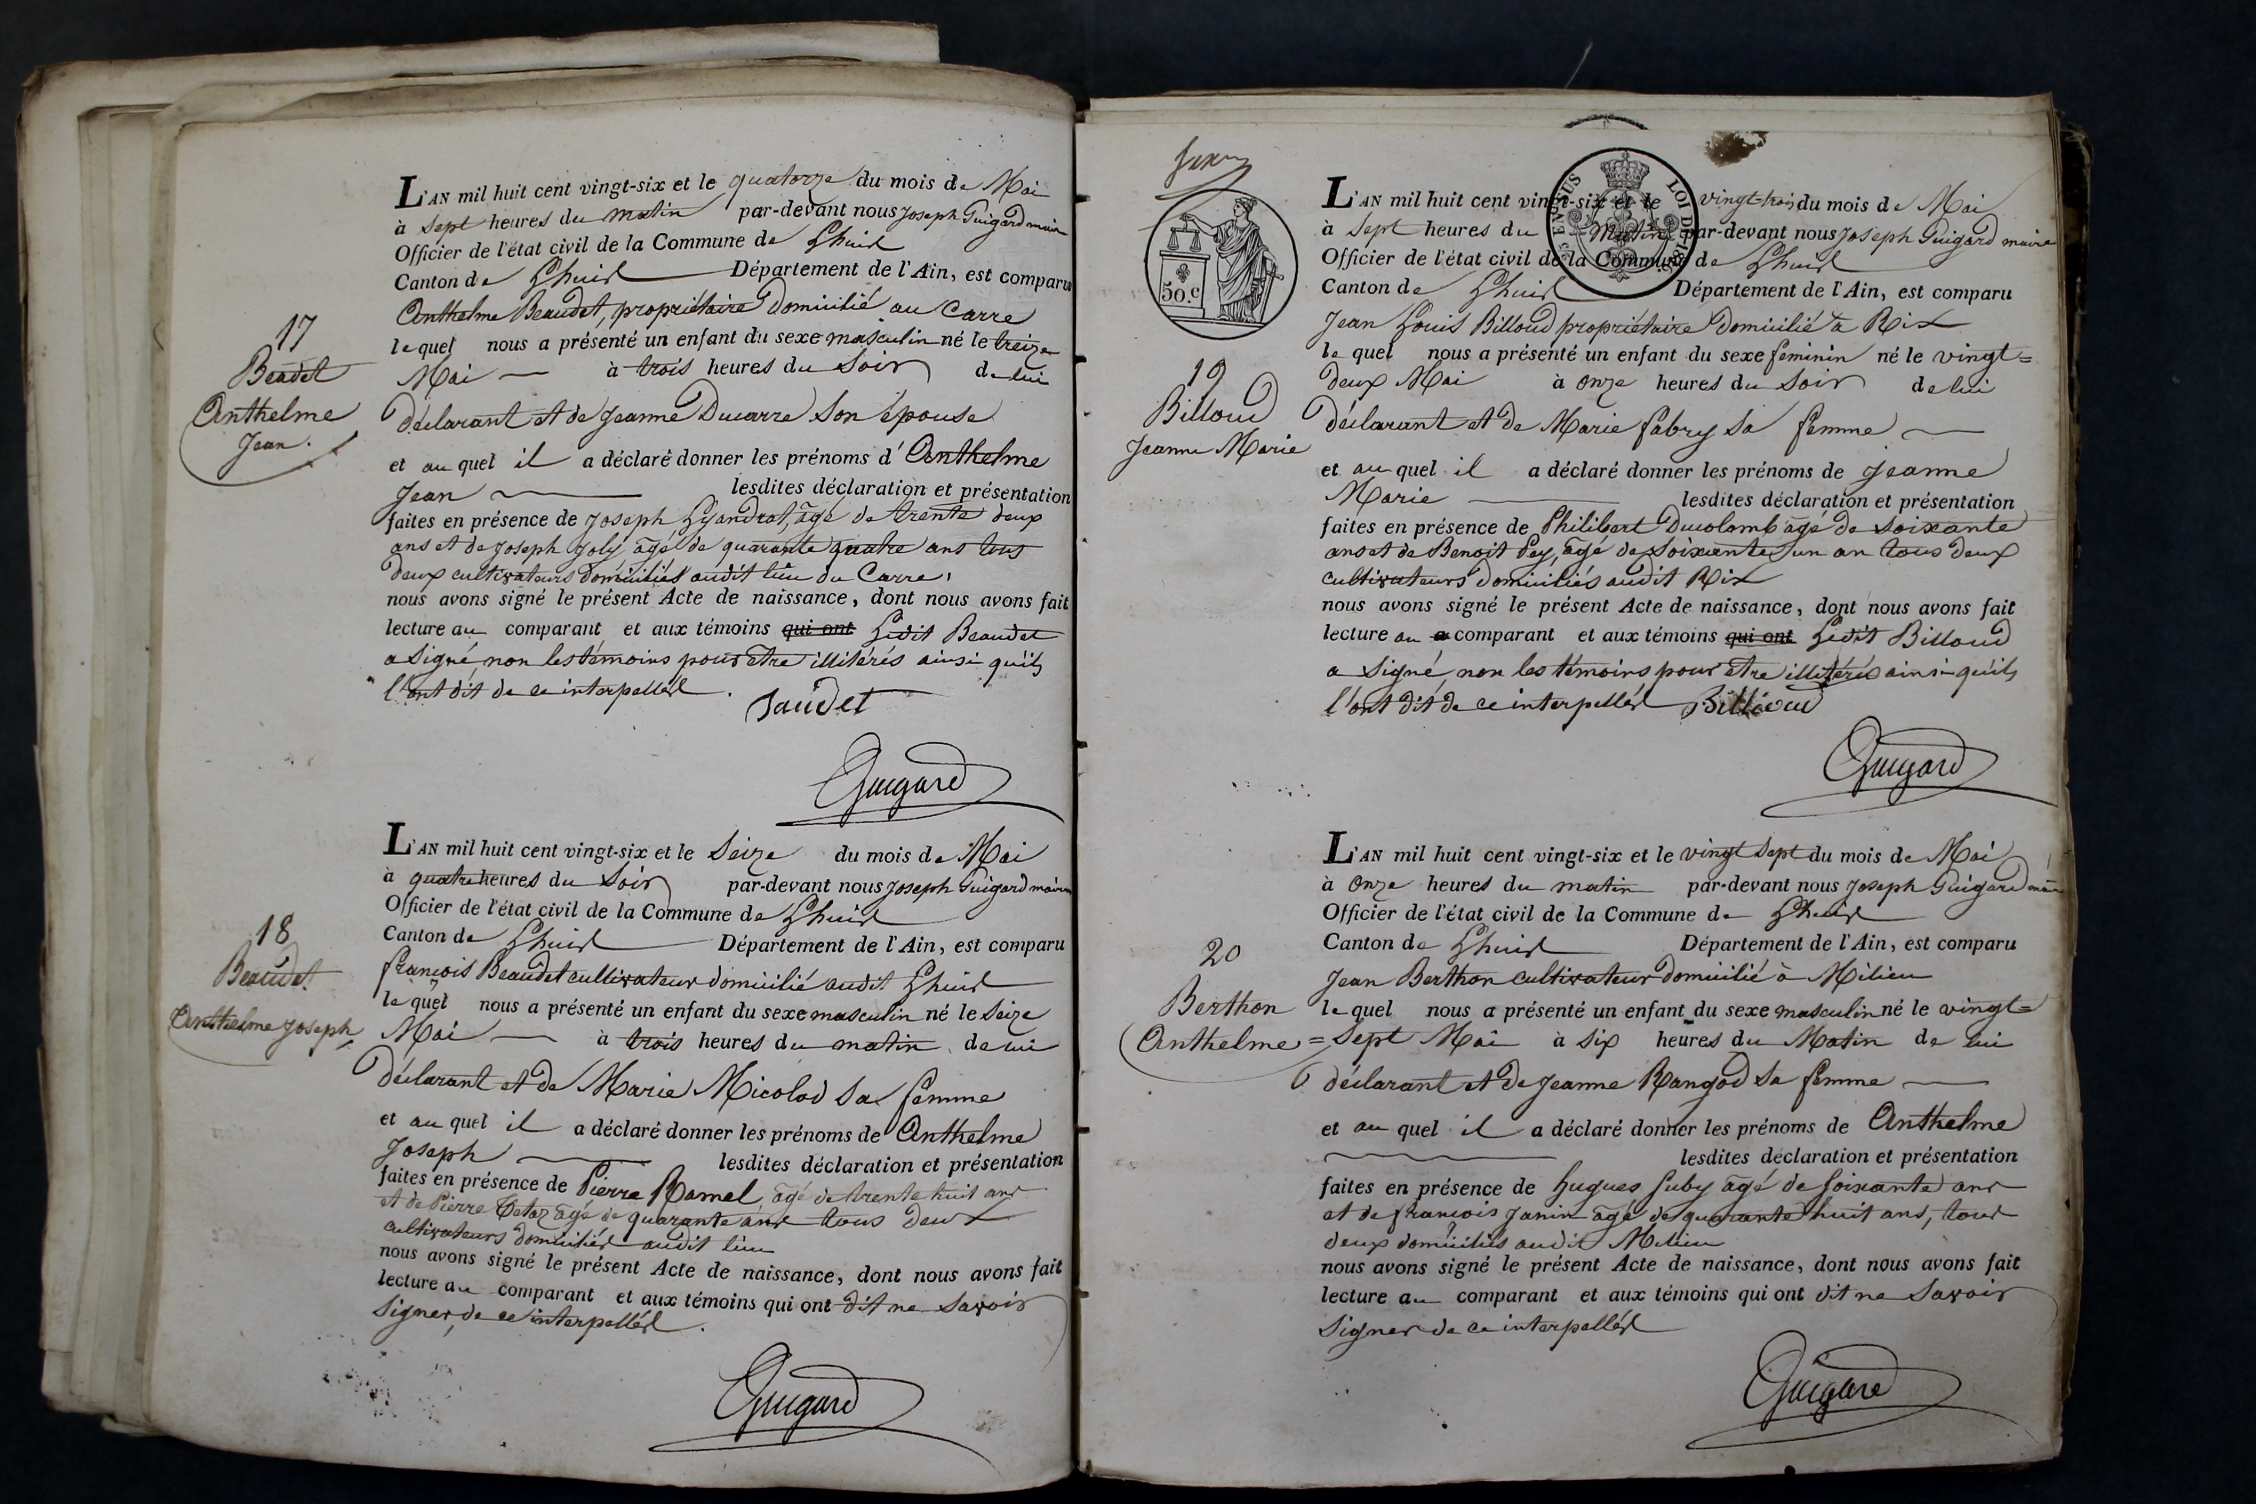 L'AN mil huit cent vingt-six et le quatorze du mois de Mai
à sept heures du matin par-devant nous Joseph Guigard maire
Officier de l'état civil de la Commune de Lhuis
Canton de Lhuis Département de l'Ain, est comparu
Anthelme Beaudet, propriétaire domicilié au Carre
le quel nous a présenté un enfant du sexe masculin né le treize
Mai à trois heures du soir de lui
déclarant et de Jeanne Ducarre son épouse
et au quel il a déclaré donner les prénoms d'Anthelme
Jean lesdites déclaration et présentation
faites en présence de Joseph Lyandrat, âgé de trente deux
ans et de Joseph Joly âgé de quarante quatre ans tous
deux cultivateurs domiciliés audit lieu du Carre,
nous avons signé le présent Acte de naissance, dont nous avons fait
lecture au comparant et aux témoins qui ont Ledit Beaudet
a signé, non les témoins pour être illitérés ainsi qu'ils
l'ont dit de ce interpellés.
Baudet
Guigard
17
Beaudet
Anthelme
Jean.
L'AN mil huit cent vingt-six et le seize du mois de Mai
à quatre heures du soir par-devant nous Joseph Guigard maire
Officier de l'état civil de la Commune de Lhuis
Canton de Lhuis Département de l'Ain, est comparu
françois Beaudet cultivateur domicilié audit Lhuis
le quel nous a présenté un enfant du sexe masculin né le seize
Mai à trois heures du matin de lui
déclarant et de Marie Micolod sa femme
et au quel il a déclaré donner les prénoms de Anthelme
Joseph lesdites déclaration et présentation
faites en présence de Pierre Ramel âgé de trente huit ans
et de Pierre Tetaz âgé de quarante ans tous deux
cultivateurs domiciliés audit lieu
nous avons signé le présent Acte de naissance, dont nous avons fait
lecture au comparant et aux témoins qui ont dit ne savoir
signer, de ce interpellés.
Guigard
18
Beaudet
Anthelme Joseph
50.c
L'AN mil huit cent vingt-six et le vingt-trois du mois de Mai
à sept heures du matin par-devant nous Joseph Guigard maire
Officier de l'état civil de la Commune de Lhuis
Canton de Lhuis Département de l'Ain, est comparu
Jean Louis Billoud propriétaire domicilié à Rix
le quel nous a présenté un enfant du sexe feminin né le vingt=
deux Mai à onze heures du soir de lui
déclarant et de Marie fabry sa femme
et au quel il a déclaré donner les prénoms de Jeanne
Marie lesdites déclaration et présentation
faites en présence de Philibert Ducolomb âgé de soixante
ans et de Benoit Pey, âgé de soixante un an tous deux
cultivateurs domiciliés audit Rix
nous avons signé le présent Acte de naissance, dont nous avons fait
lecture au comparant et aux témoins qui ont Ledit Billoud
a signé, non les témoins pour être illitérés ainsi qu'ils
l'ont dit de ce interpellés Billioud
Guigard
19
Billoud
Jeanne Marie
L'AN mil huit cent vingt-six et le vingt sept du mois de Mai
à onze heures du matin par-devant nous Joseph Guigard maire
Officier de l'état civil de la Commune de Lhuis
Canton de Lhuis Département de l'Ain, est comparu
Jean Berthon cultivateur domicilié à Milieu
le quel nous a présenté un enfant du sexe masculin né le vingt=
=sept Mai à six heures du Matin de lui
déclarant et de Jeanne Rangod sa femme
et au quel il a déclaré donner les prénoms de Anthelme
lesdites déclaration et présentation
faites en présence de Hugues Juby âgé de soixante ans
et de françois Janin âgé de quarante huit ans, tous
deux domiciliés audit Milieu
nous avons signé le présent Acte de naissance, dont nous avons fait
lecture au comparant et aux témoins qui ont dit ne savoir
signer de ce interpellés
Guigard
20
Berthon
Anthelme